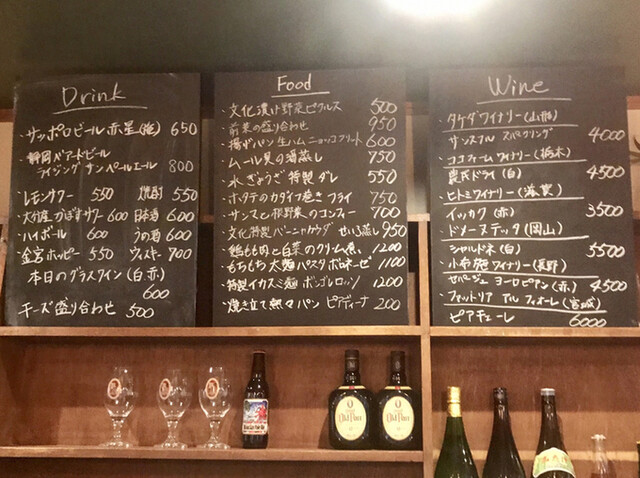 Drink
・サッポロビール 赤星(瓶) 650
・静岡ベアードビール
ライジングサンペールエール 800
・レモンサワー 550 焼酎 550
・大分産かぼすサワー 600 日本酒 600
・ハイボール 600 うめ酒 600
・金宮ホッピー 550 ウィスキー 700
・本日のグラスワイン(白赤)
600
・チーズ盛り合わせ 500
Food
・文化漬け野菜ピクルス 500
・前菜の盛り合わせ 950
・揚げパン 生ハム ニョッコフリット 600
・ムール貝の酒蒸し 750
・水ぎょうざ 特製ダレ 550
・ホタテのカダイフ巻き フライ 750
・サンマと根野菜のコンフィー 700
・文化特製バーニャカウダ せいろ蒸し 950
・鶏もも肉と白菜のクリーム煮 1200
・もちもち太麺パスタ ボロネーゼ 1100
・特製イカスミ麺 ボンゴレロッソ 1200
・焼き立て熱々パン ピアディーナ 200
Wine
・タケダワイナリー(山形)
サンスフル スパークリング 4000
・ココファームワイナリー(栃木)
農民ドライ(白) 4500
・ヒトミワイナリー(滋賀)
イッカク(赤) 3500
・ドメーヌテッタ(岡山)
シャルドネ(白) 5500
・小布施ワイナリー(長野)
セパージュ ヨーロピアン(赤) 4500
・ファットリア アル フィオーレ(宮城)
ピアチェーレ 6000
Old Parr